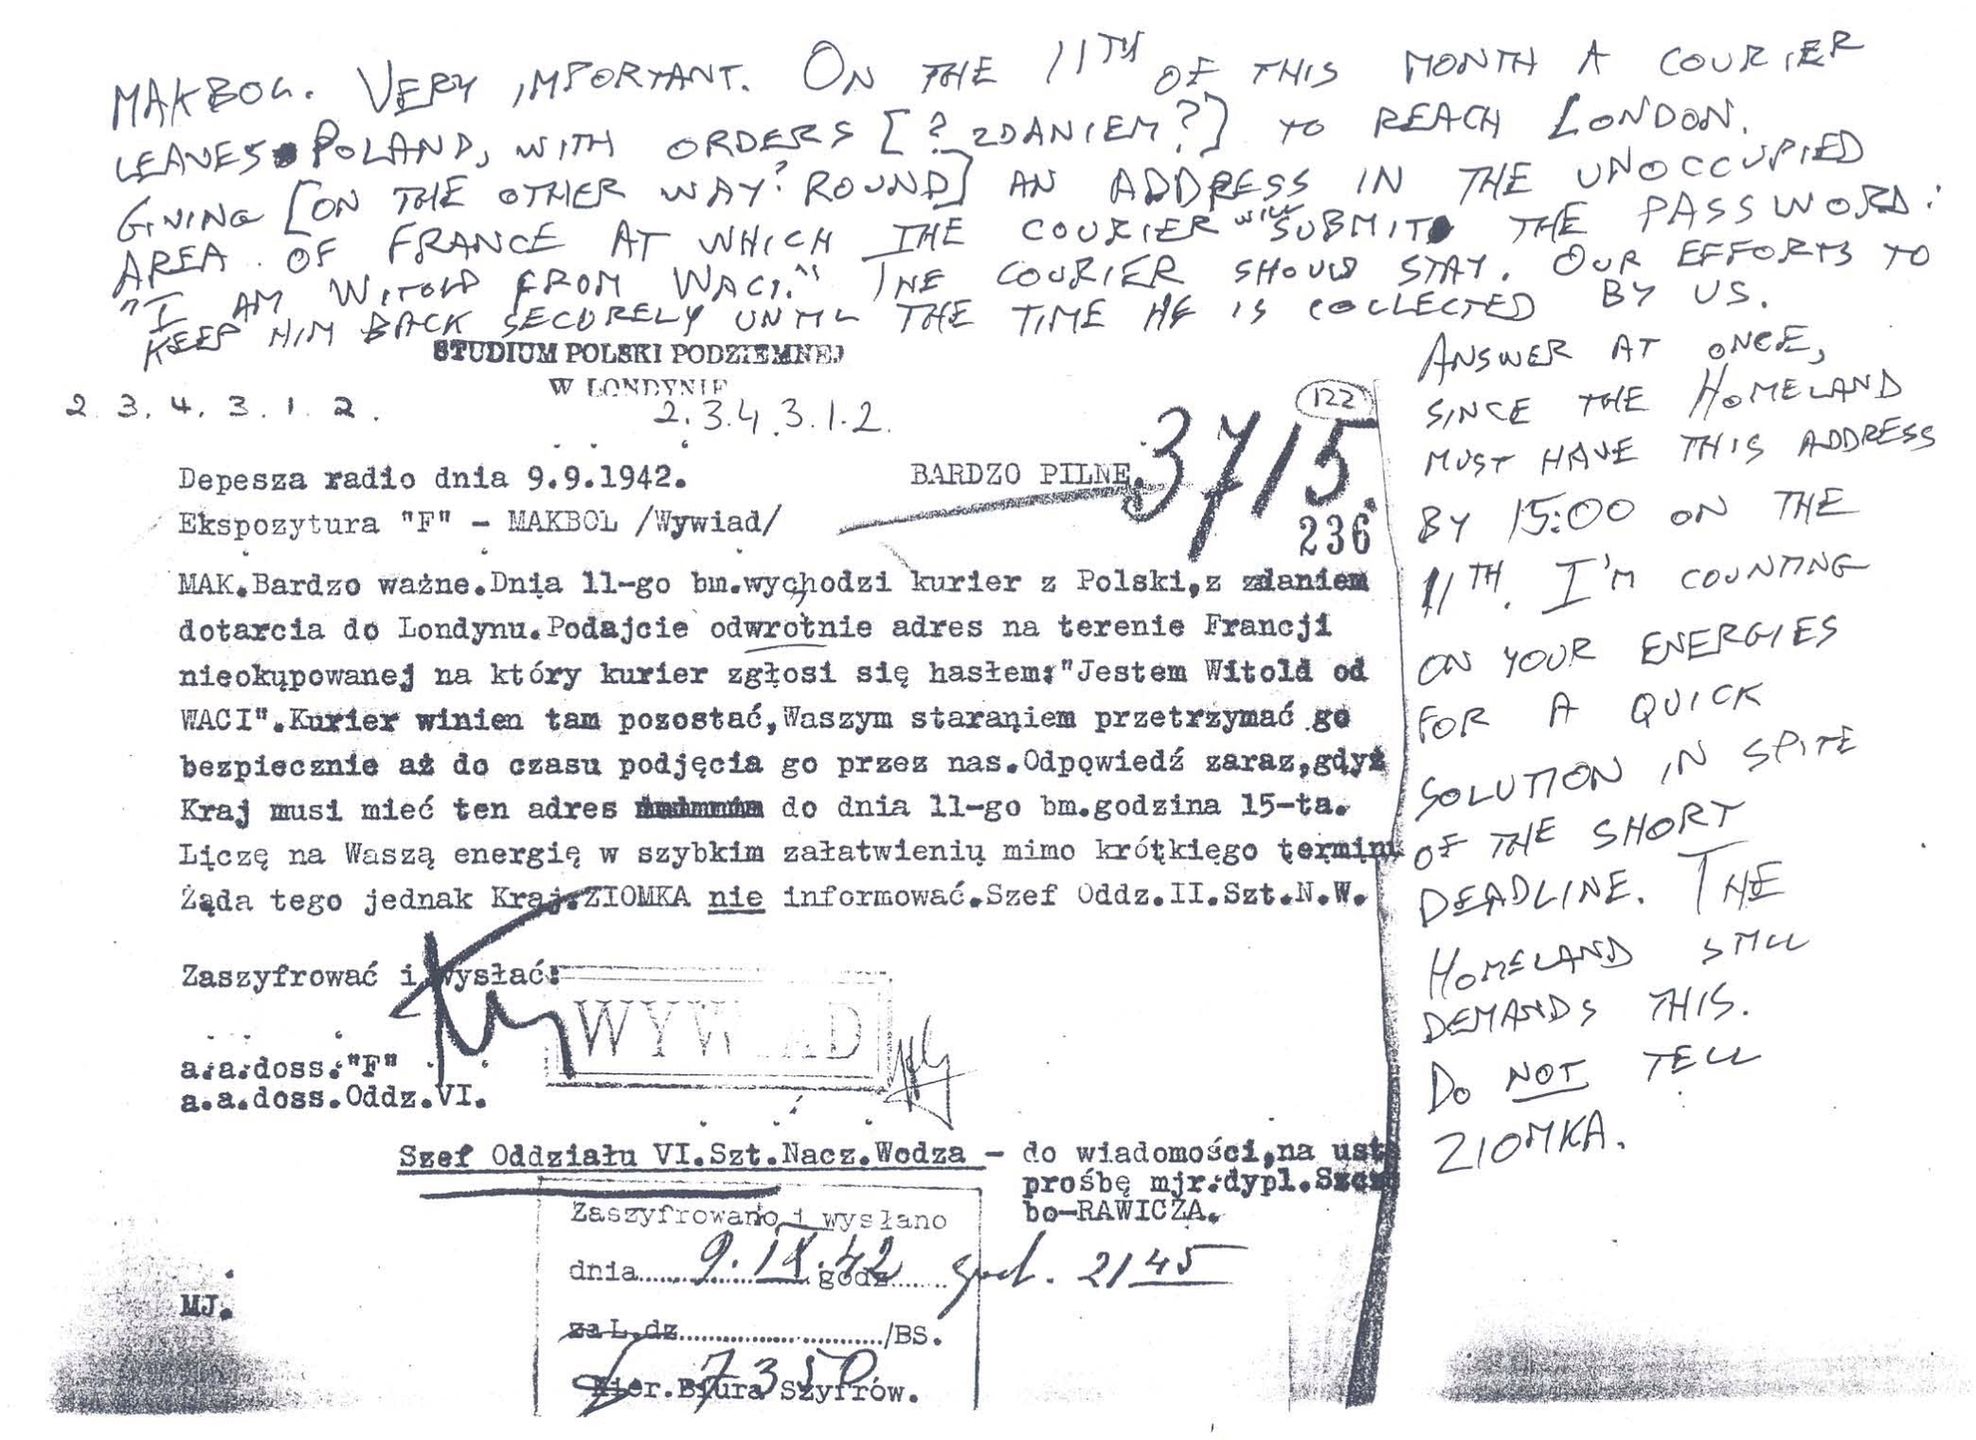 MAKBOL. VERY IMPORTANT. ON THE 11TH OF THIS MONTH A COURIER
LEAVES POLAND, WITH ORDERS [? ZDANIEM?] TO REACH LONDON.
GIVING [ON THE OTHER WAY? ROUND] AN ADDRESS IN THE UNOCCUPIED
AREA OF FRANCE AT WHICH THE COURIER WILL SUBMIT THE PASSWORD:
"I AM WITOLD FROM WACI." THE COURIER SHOULD STAY. OUR EFFORTS TO
KEEP HIM BACK SECURELY UNTIL THE TIME HE IS COLLECTED BY US.
ANSWER AT ONCE,
SINCE THE HOMELAND
MUST HAVE THIS ADDRESS
BY 15:00 ON THE
11TH. I'M COUNTING
ON YOUR ENERGIES
FOR A QUICK
SOLUTION IN SPITE
OF THE SHORT
DEADLINE. THE
HOMELAND STILL
DEMANDS THIS.
DO NOT TELL
ZIOMKA.
STUDIUM POLSKI PODZIEMNEJ
W LONDYNIE
2.3.4.3.1.2.
2.3.4.3.1.2.
122
3715.
236
Depesza radio dnia 9.9.1942. BARDZO PILNE.
Ekspozytura "F" - MAKBOL /Wywiad/
MAK.Bardzo ważne.Dnia 11-go bm.wychodzi kurier z Polski,z zdaniem
dotarcia do Londynu.Podajcie odwrotnie adres na terenie Francji
nieokupowanej na który kurier zgłosi się hasłem:"Jestem Witold od
WACI".Kurier winien tam pozostać,Waszym staraniem przetrzymać go
bezpiecznie aż do czasu podjęcia go przez nas.Odpowiedź zaraz,gdyż
Kraj musi mieć ten adres do dnia 11-go bm.godzina 15-ta.
Liczę na Waszą energię w szybkim załatwieniu mimo krótkiego terminu
Żąda tego jednak Kraj.ZIOMKA nie informować.Szef Oddz.II.Szt.N.W.
Zaszyfrować i wysłać:
WYWIAD
a.a.doss."F"
a.a.doss.Oddz.VI.
Szef Oddziału VI.Szt.Nacz.Wodza - do wiadomości,na ust
prośbę mjr.dypl.Szcz
bo-RAWICZA.
Zaszyfrowano i wysłano
dnia 9.IX.42 godz. god. 2145
za L.dz. /BS.
7350
Kier.Biura Szyfrów.
MJ.